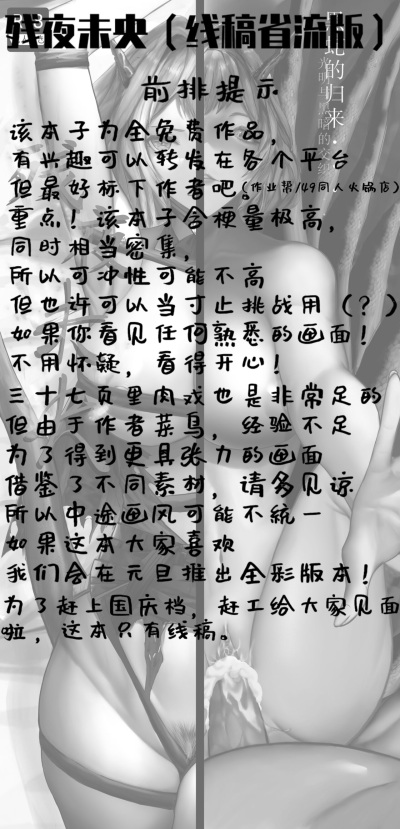 残夜未央（线稿省流版）
前排提示
该本子为全免费作品，
有兴趣可以转发在各个平台
但最好标下作者吧。(作业帮/49同人火锅店)
重点！该本子含梗量极高，
同时相当密集，
所以可冲性可能不高
但也许可以当寸止挑战用（？）
如果你看见任何熟悉的画面！
不用怀疑，看得开心！
三十七页里肉戏也是非常足的
但由于作者菜鸟，经验不足
为了得到更具张力的画面
借鉴了不同素材，请多见谅
所以中途画风可能不统一
如果这本大家喜欢
我们会在元旦推出全彩版本！
为了赶上国庆档，赶工给大家见面
啦，这本只有线稿。
的归来
光明与黑暗的交织